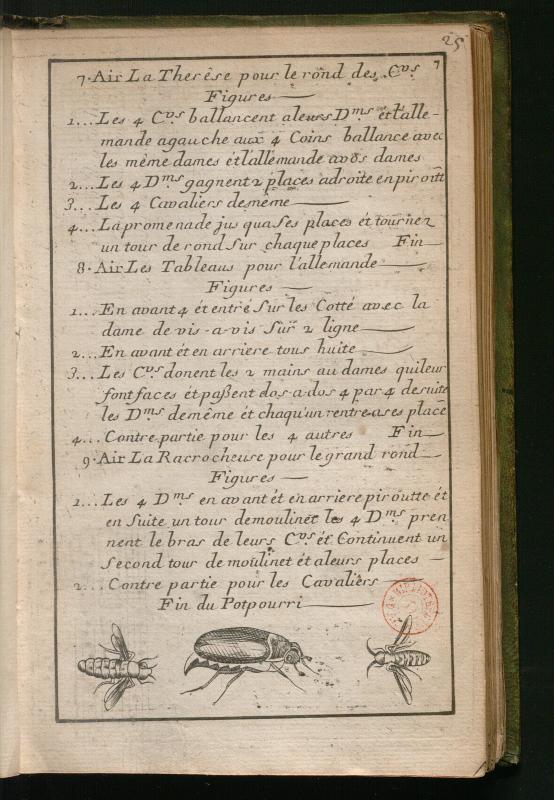 25
7
7. Air La Therêse pour le rond des C.vs
Figures
1... Les 4 C.vs ballancent a leurs D.ms et l'alle-
mande agauche aux 4 Coins ballance avec
les même dames et l'allemande a vos dames
2... Les 4 D.ms gagnent 2 places adroite en piroitt
3... Les 4 Cavaliers de même
4... La promenade jus qua Ses places ét tournez
un tour de rond Sur chaque places Fin
8. Air Les Tableaus pour l'allemande
Figures
1... En avant 4 ét entré Sur les Cotté avec la
dame de vis-a-vis Sur 2 ligne
2... En avant ét en arriere tous huite
3... Les C.vs donent les 2 mains au dames qui leur
font faces ét paßent dos-a-dos 4 par 4 de suite
les D.ms de même et chaqu'un rentre a ses place
4... Contre partie pour les 4 autres Fin
9. Air La Racrocheuse pour le grand rond
Figures
1... Les 4 D.ms en avant ét en arriere piroutte ét
en Suite un tour demoulinet les 4 D.ms pren
nent le bras de leurs C.vs ét Continuent un
Second tour de moulinet ét aleurs places
2... Contre partie pour les Cavaliers
Fin du Potpourri